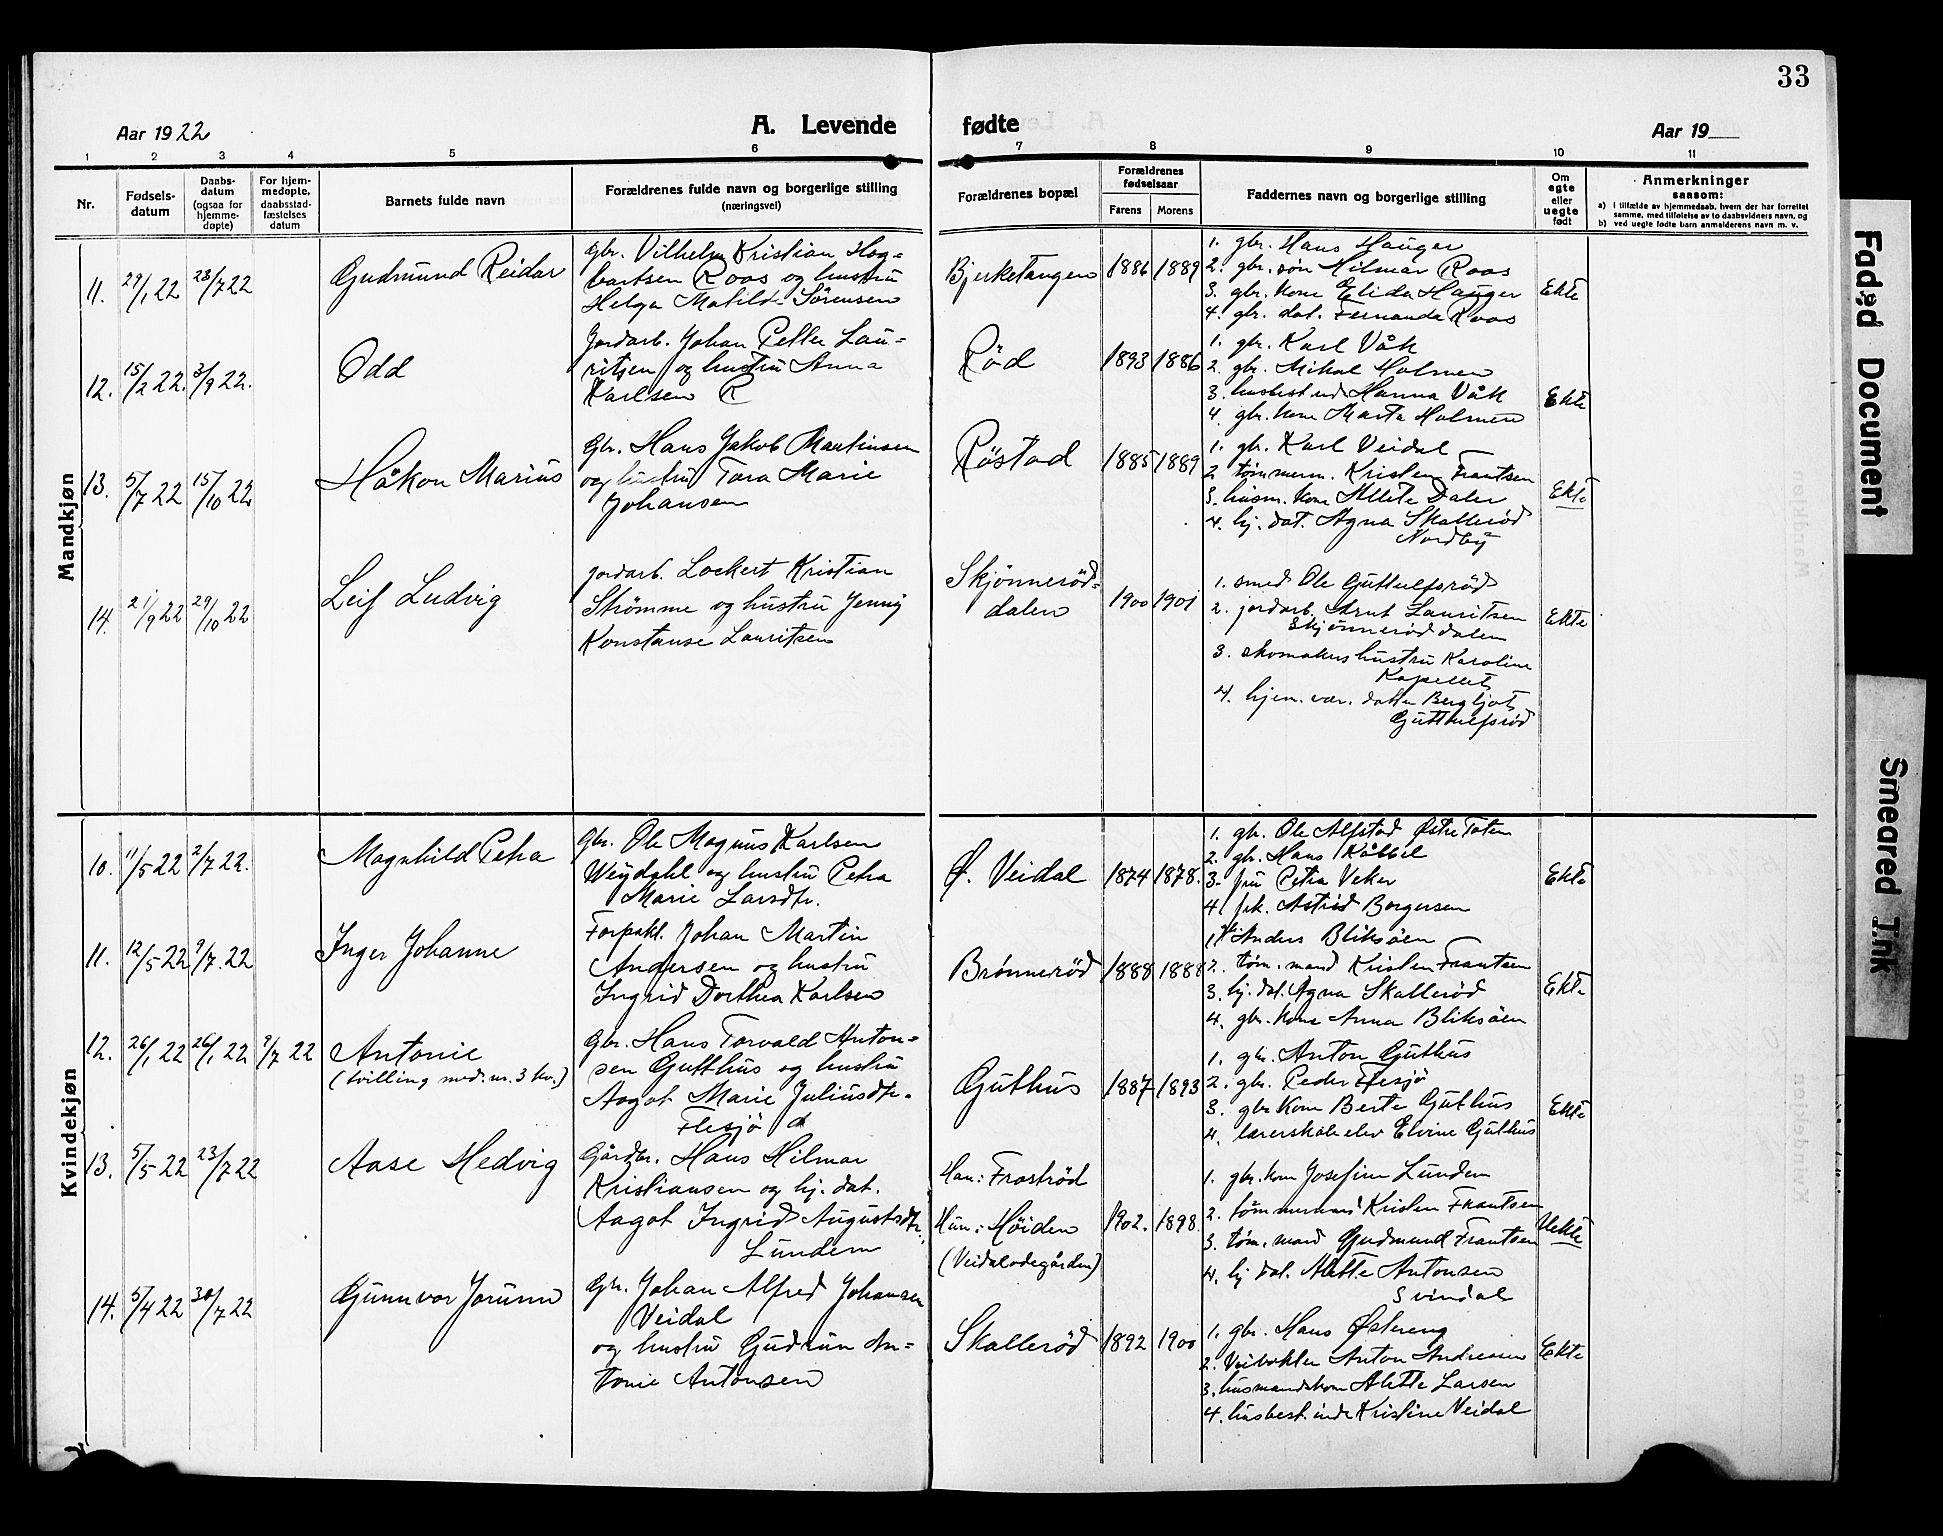 33
Aar 1922
A. Levende
fødte
Aar 19
1 2 3 4 5 6
7 8 9 10 11
Nr.
Fødsels-
datum
Daabs-
datum
(ogsaa for
hjemme-
døpte)
For hjem-
medøpte,
daabsstad-
fæstelses
datum
Barnets fulde navn
Forældrenes fulde navn og borgerlige stilling
(næringsvei)
Forældrenes bopæl
Forældrenes
fødselsaar
Farens Morens
Faddernes navn og borgerlige stilling
Om
egte
eller
uegte
født
Anmerkninger
saasom:
a) i tilfælde av hjemmedaab, hvem der har forrettet
samme, med tilføielse av to daabsvidners navn, og
b) ved uegte fødte barn anmelderens navn m. v.
Mandkjøn
11. 29/1 22 23/7 22
Gudmund Reidar
Gbr. Vilhelm Kristian Hag-
bartsen Roos og hustru
Helga Matilde Sørensen
Bjerketangen
1886 1889
1. gbr. Hans Hauger
2. gbr. søn Hilmar Roos
3. gbr. kone Elida Hauger
4. gbr. dat. Fernanda Roos
Ekte
12. 15/2 22. 3/9 22.
Odd
Jordarb. Johan Petter Lau-
ritsen og hustru Anna
Karlsen R
Rød
1893 1886
1. gbr. Karl Våk
2. gbr. Mikal Holmen
3. husbest.ind Hanna Våk
4. gbr. kone Marta Holmen
Ekte
13. 5/7 22 15/10 22
Håkon Marius
Gbr. Hans Jakob Martinsen
og hustru Tora Marie
Johansen
Røstad
1885 1889
1. gbr. Karl Veidal
2 tømmerm. Kristen Frantsen
3. husm. kone Alete Daler
4. hj. dat. Agna Skallerød
Nordby
Ekte
14. 21/9 22 29/10 22
Leif Ludvig
Jordarb. Lockert Kristian
Strømme og hustru Jenny
Konstanse Lauritsen
Skjønnerød-
dalen
1900 1901
1. smed Ole Guttulfsrød
2. jordarb. Arnt Lauritsen
Skjønnerøddalen
3. skomakers hustru Karoline
Kapellet
4. hjem. vær. datter Bergljot
Guttulfsrød
Ekte
Kvindekjøn
10. 11/5 22 2/7 22.
Magnhild Petra
Gbr. Ole Magnus Karlsen
Weydahl og hustru Petra
Marie Larsdtr.
Ø. Veidal
1874 1878.
1. gbr. Ole Alfstad Østre Toten
2. gbr. Hans Kåbbel
3. fru Petra Veker
4. frk. Astrid Borgersen
Ekte
11. 12/5 22 9/7. 22
Inger Johanne
Forpakt. Johan Martin
Andersen og hustru
Ingrid Dorthea Karlsen
Brønnerød
1888 1888
1. Anders Bliksøen
2. tøm. mand Kristen Frantsen
3. hj. dat. Agna Skallerød
4. gbr. kone Anna Bliksøen
Ekte
12. 26/1 22 26/1 22 9/7 22
Antonie
(tvilling med. nr. 3 kv.)
Gbr. Hans Torvald Anton-
sen Gutthus og hustru
Aagot Marie Juliusdtr.
Flesjø
Guthus
1887 1893
1. gbr. Anton Guthus
2. gbr. Peder Flesjø
3. gbr kone Berte Guthus
4. lærerskoleelev Elvine Guthus
Ekte
13. 5/5 22 23/7 22
Aase Hedvig
Gårdbr. Hans Hilmar
Kristiansen og hj. dat.
Aagot Ingrid Augustsdtr.
Lundem
Han: Frostrød
Hun: Høiden
(Veidalødegården)
1902. 1898.
1. gbr. kone Josefine Lundem
2. tømmermand Kristen Frantsen
3. tøm. mand Gudmund Frantsen
4. hj. dat. Alette Antonsen
Svindal
Uekte
14. 5/4 22 30/7 22
Gunnvor Jorunn
Gbr. Johan Alfred Johansen
Veidal
og hustru Gudrun An-
tonie Antonsen
Skallerød
1892 1900
1. gbr. Hans Østereng
2. Veivokter Anton Andresen
3. husmandskone Alette Larsen
4. husbest.inde Kristine Veidal
Ekte
Faded Document
Smeared Ink